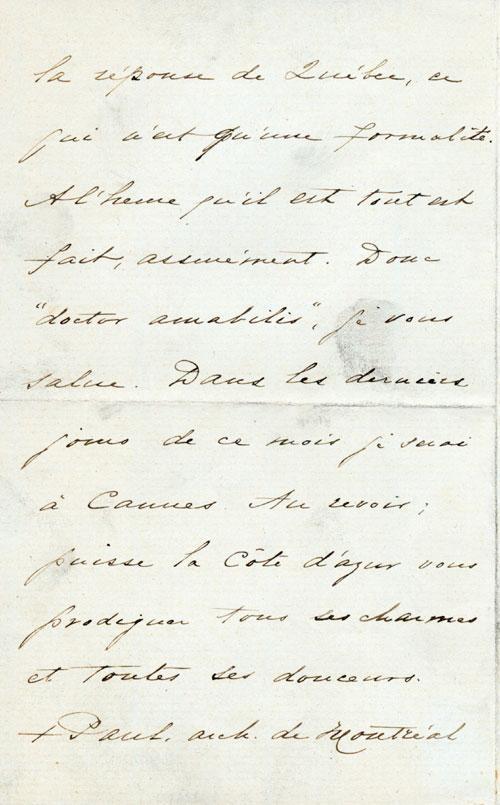 la réponse de Québec, ce
qui n'est qu'une formalité.
A l'heure qu'il est tout est
fait, assurément. Donc
"doctor amabilis", je vous
salue. Dans les derniers
jours de ce mois je serai
à Cannes. Au revoir;
puisse la Côte d'azur vous
prodiguer tous ses charmes
et toutes ses douceurs.
+ Paul, arch. de Montréal